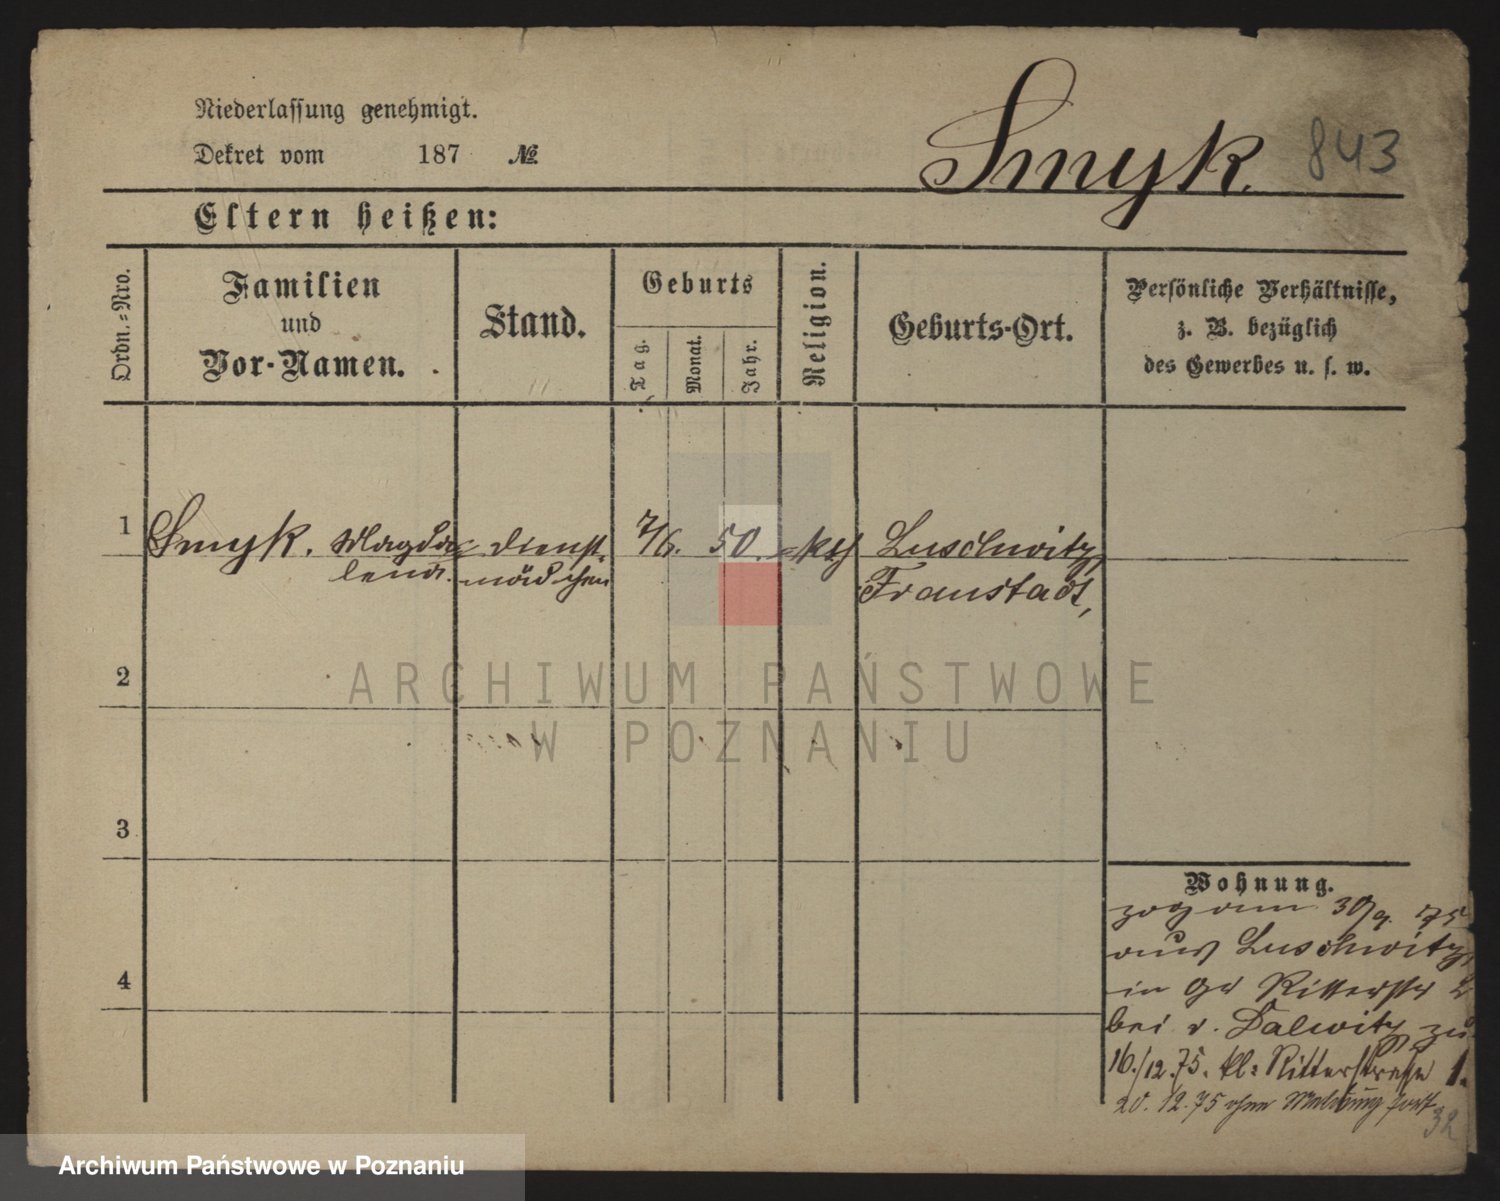 Niederlassung genehmigt.
Dekret vom 187 №
Smyk.
843
Eltern heißen:
Ordn.-Nro.
Familien
und
Vor-Namen.
Stand.
Geburts
Tag.
Monat.
Jahr.
Religion.
Geburts-Ort.
Persönliche Verhältnisse,
z. B. bezüglich
des Gewerbes u. s. w.
1 Smyk. Magda= Dienst- 7/6. 50. kth Luschwitz,
lena. mädchen Fraustadt,
2
ARCHIWUM PAŃSTWOWE
W POZNANIU
3
4
Wohnung.
zog am 30/9. 75
aus Luschwitz,
in Gr Ritterstr 2
bei v. Dalwitz zu.
16./12.75. kl: Ritterstraße 1.
20. 12. 75 ohne Meldung fort
32
Archiwum Państwowe w Poznaniu